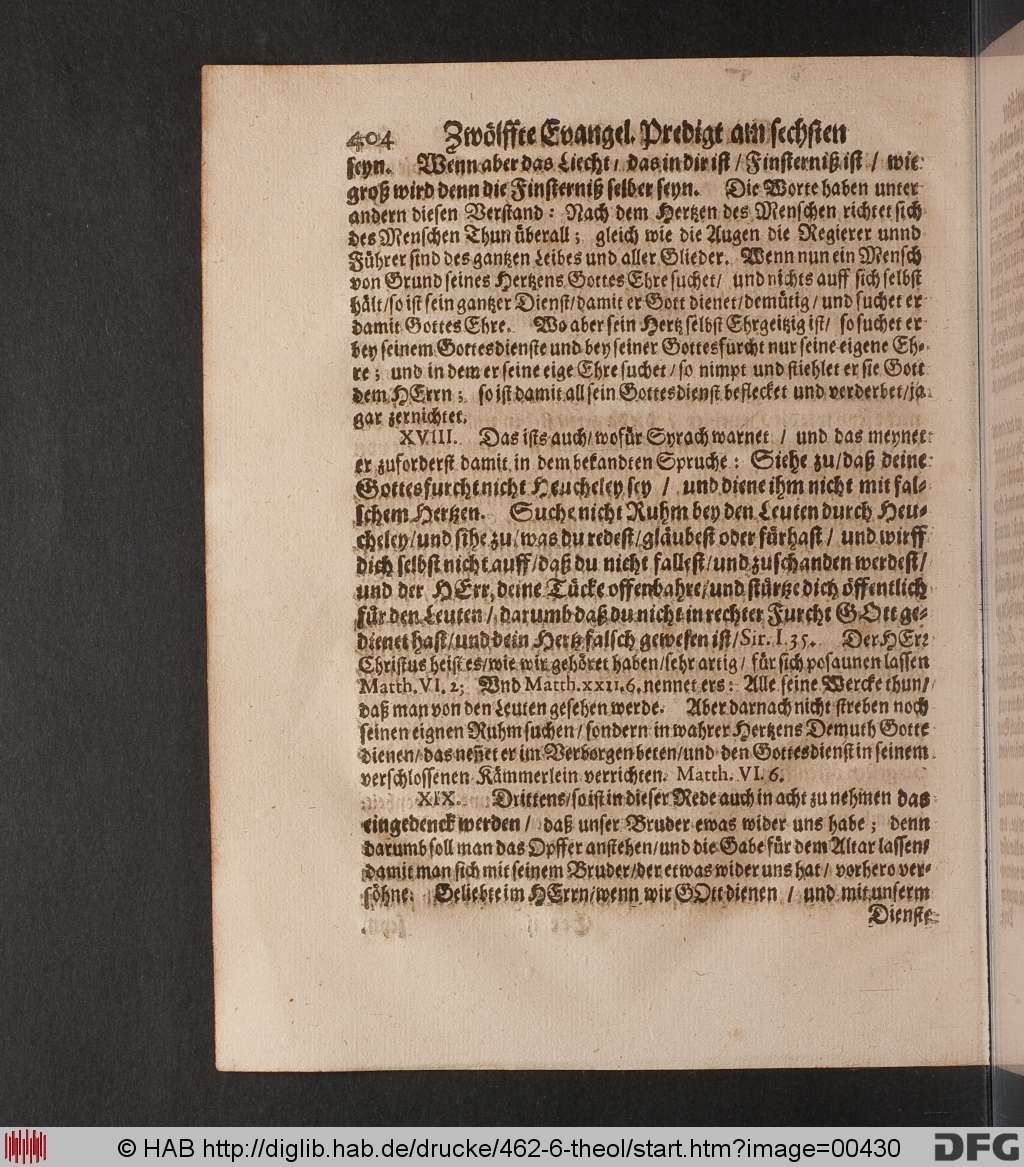 404 Zwölffte Evangel. Predigt am sechsten
seyn. Wenn aber das Liecht / das in dir ist / Finsterniß ist / wie
groß wird denn die Finsterniß selber seyn. Die Worte haben unter
andern diesen Verstand: Nach dem Hertzen des Menschen richtet sich
des Menschen Thun überall; gleich wie die Augen die Regierer unnd
Führer sind des gantzen Leibes und aller Glieder. Wenn nun ein Mensch
von Grund seines Hertzens Gottes Ehre suchet / und nichts auff sich selbst
hält / so ist sein gantzer Dienst / damit er Gott dienet / demütig / und suchet er
damit Gottes Ehre. Wo aber sein Hertz selbst Ehrgeitzig ist / so suchet er
bey seinem Gottesdienste und bey seiner Gottesfurcht nur seine eigene Eh-
re; und in dem er seine eige Ehre suchet / so nimpt und stiehlet er sie Gott
dem HErrn; so ist damit all sein Gottesdienst beflecket und verderbet / ja
gar zernichtet.
XVIII. Das ists auch / wofür Syrach warnet / und das meynet
er zuforderst damit in dem bekandten Spruche: Siehe zu / daß deine
Gottesfurcht nicht Heucheley sey / und diene ihm nicht mit fal-
schem Hertzen. Suche nicht Ruhm bey den Leuten durch Heu-
cheley / und sihe zu / was du redest / gläubest oder fürhast / und wirff
dich selbst nicht auff / daß du nicht fallest / und zuschanden werdest /
und der HErr, deine Tücke offenbahre / und stürtze dich öffentlich
für den Leuten / darumb daß du nicht in rechter Furcht GOtt ge-
dienet hast / und dein Hertz falsch gewesen ist / Sir. I. 35. Der HErr
Christus heist es / wie wir gehöret haben / sehr artig / für sich posaunen lassen
Matth. VI. 2; Vnd Matth. XXII. 6. nennet ers: Alle seine Wercke thun /
daß man von den Leuten gesehen werde. Aber darnach nicht streben noch
seinen eignen Ruhm suchen / sondern in wahrer Hertzens Demuth Gotte
dienen / das neñet er im Verborgen beten / und den Gottesdienst in seinem
verschlossenen Kämmerlein verrichten. Matth. VI. 6.
XIX. Drittens / so ist in dieser Rede auch in acht zu nehmen das
eingedenck werden / daß unser Bruder ewas wider uns habe; denn
darumb soll man das Opffer anstehen / und die Gabe für dem Altar lassen /
damit man sich mit seinem Bruder / der etwas wider uns hat / vorhero ver-
söhne. Geliebte im HErrn / wenn wir GOtt dienen / und mit unserm
Dienste
© HAB http://diglib.hab.de/drucke/462-6-theol/start.htm?image=00430
DFG